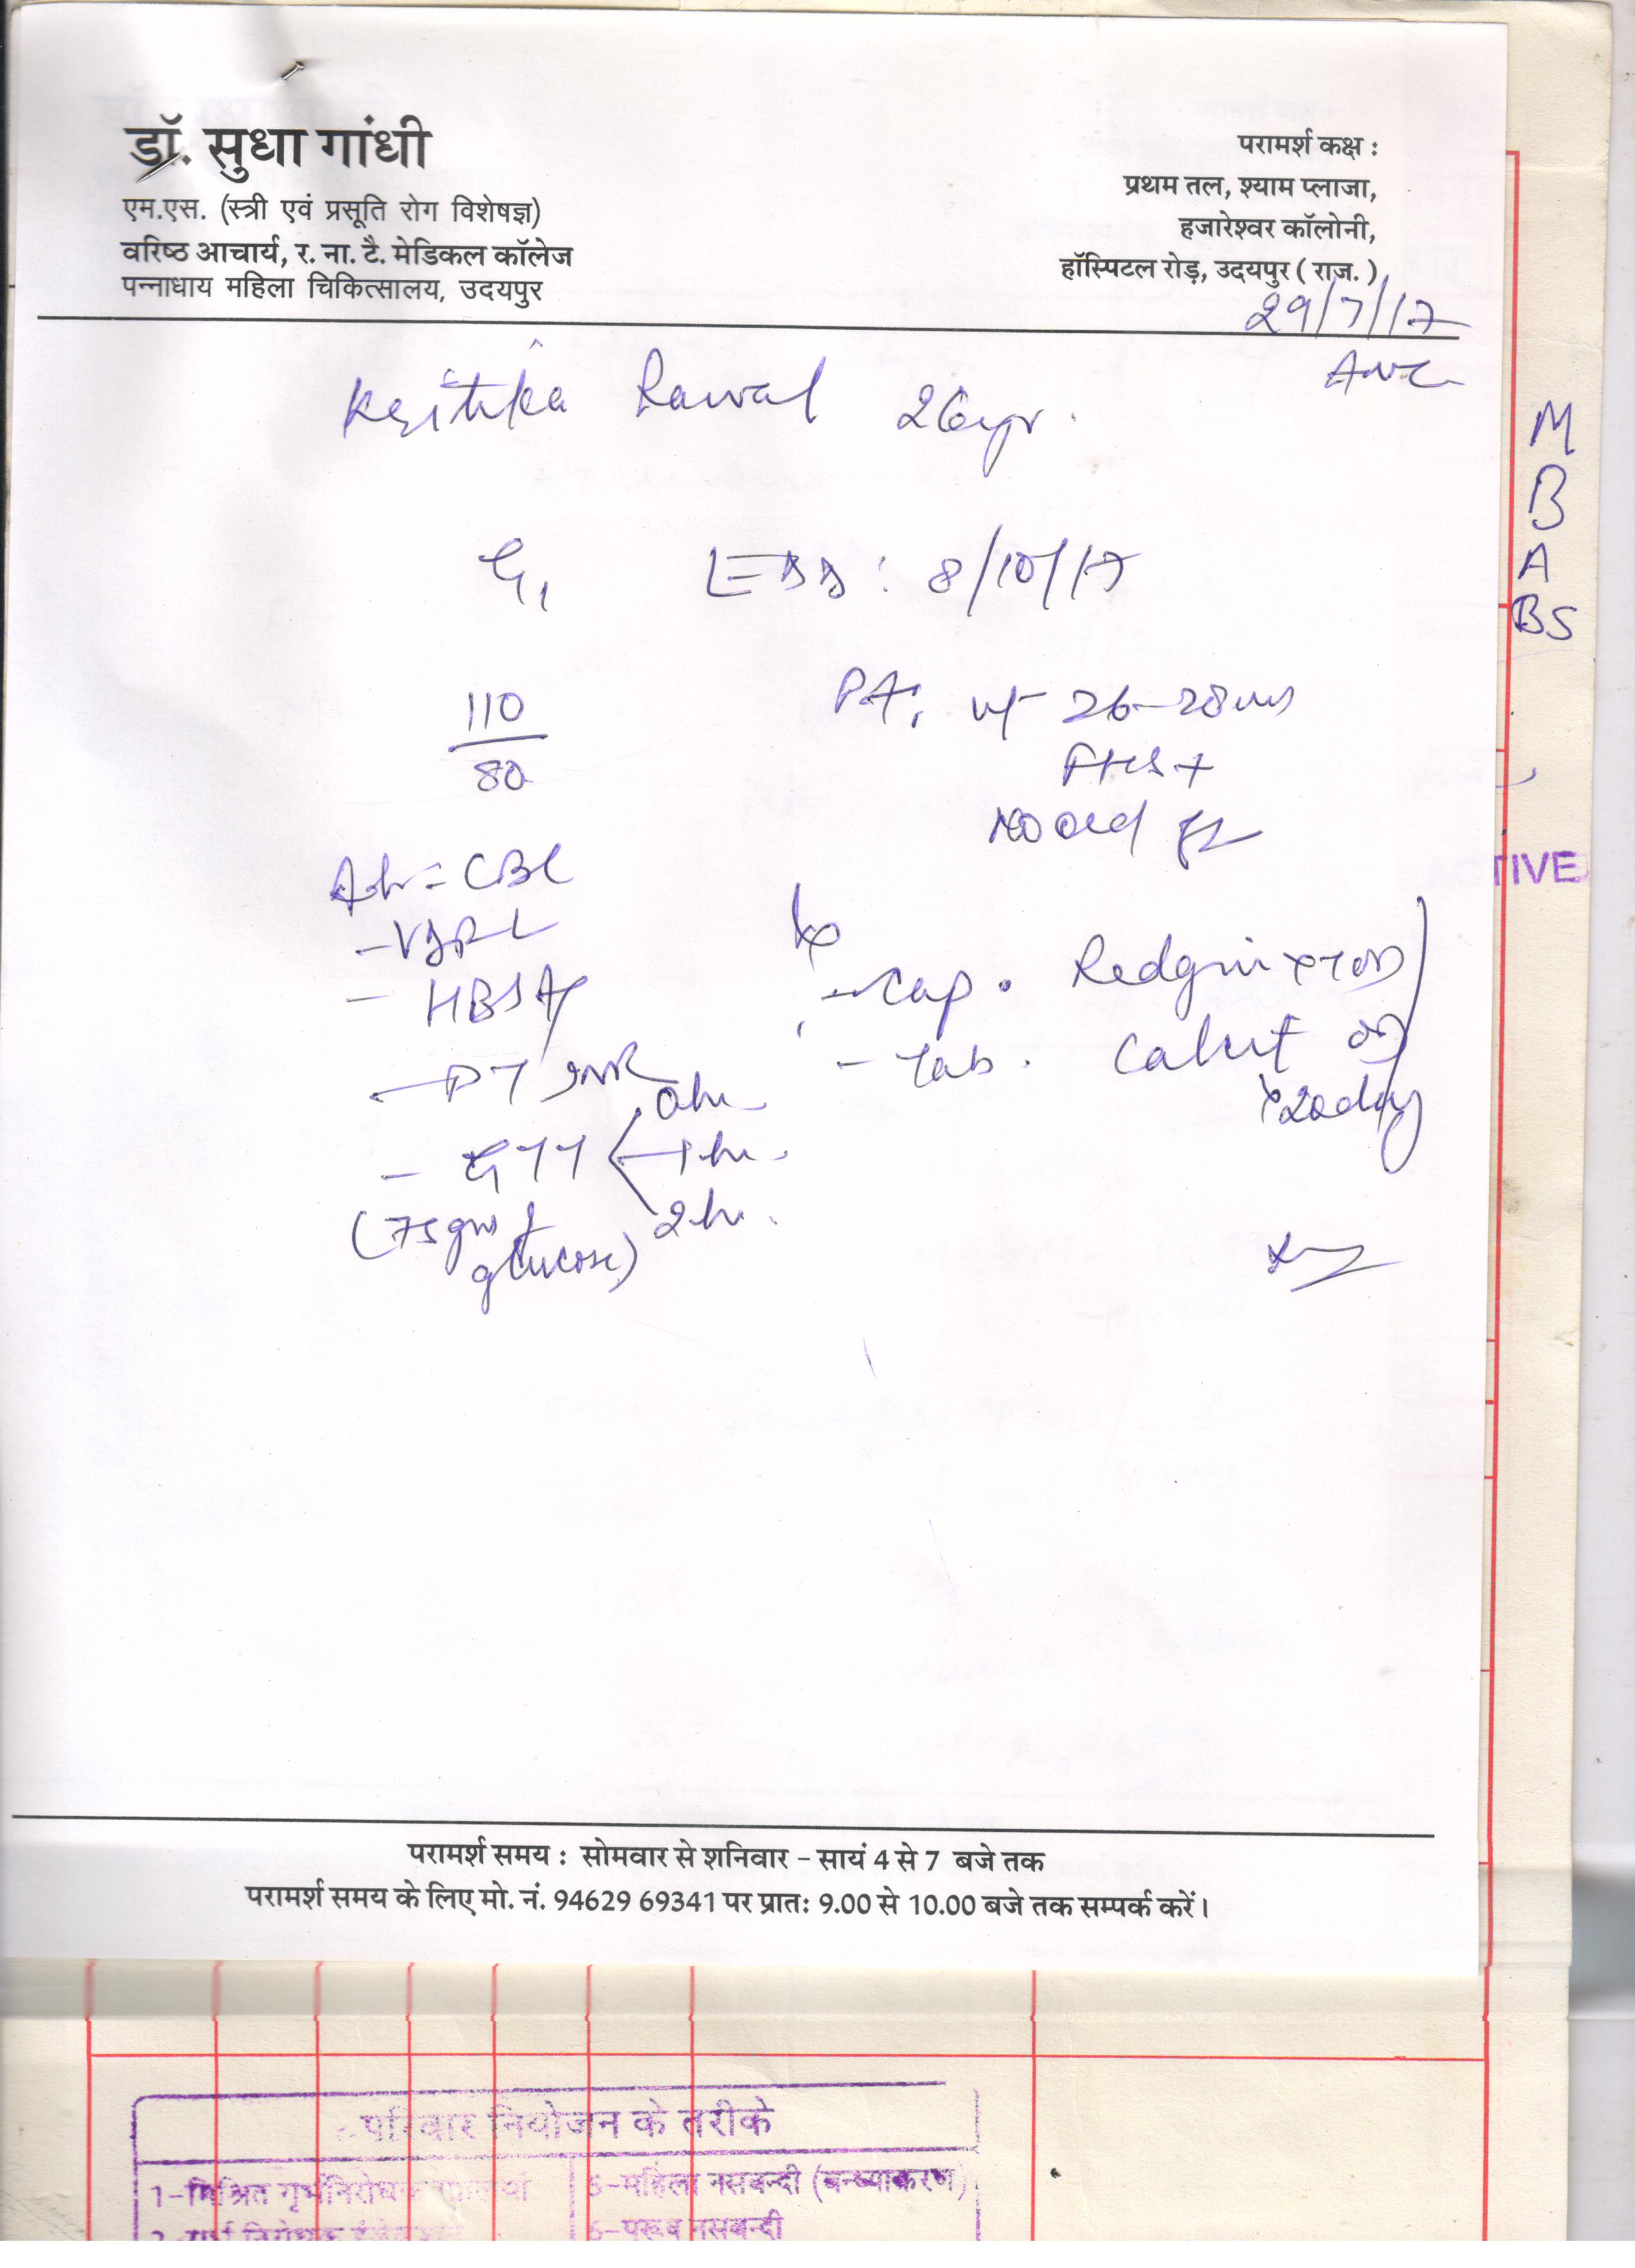 डॉ. सुधा गांधी
एम.एस. (स्त्री एवं प्रसूति रोग विशेषज्ञ)
वरिष्ठ आचार्य, र. ना. टै. मेडिकल कॉलेज
पन्नाधाय महिला चिकित्सालय, उदयपुर
परामर्श कक्ष :
प्रथम तल, श्याम प्लाजा,
हजारेश्वर कॉलोनी,
हॉस्पिटल रोड़, उदयपुर ( राज. )
29/7/17
ANC
Kritika Rawal 26yr.
G1 EDD : 8/10/17
110
80
PA: 26-28
FHS +
No
Adv = CBC
- VDRL
- HBSAg
- PT INR
- GTT 0hr
1hr.
2hr.
(75gm
glucose)
- Cap. Redgin OD
- Tab.
x 20day
M
B
A
BS
TIVE
परामर्श समय : सोमवार से शनिवार - सायं 4 से 7 बजे तक
परामर्श समय के लिए मो. नं. 94629 69341 पर प्रातः 9.00 से 10.00 बजे तक सम्पर्क करें।
परिवार नियोजन के तरीके
1-मिश्रित गर्भनिरोधक
5-महिला नसबन्दी (बन्ध्याकरण)
6-पुरूष नसबन्दी